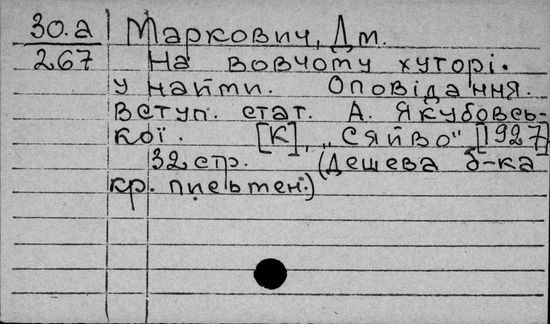 30.а Маркович, Дм.
267 На вовчому хуторі.
У найми. Оповідання.
Вступ. стат. А. Якубовсь-
кої. [К], „Сяйво" [1927]
32 стр. (Дешева б-ка
кр. письмен.)